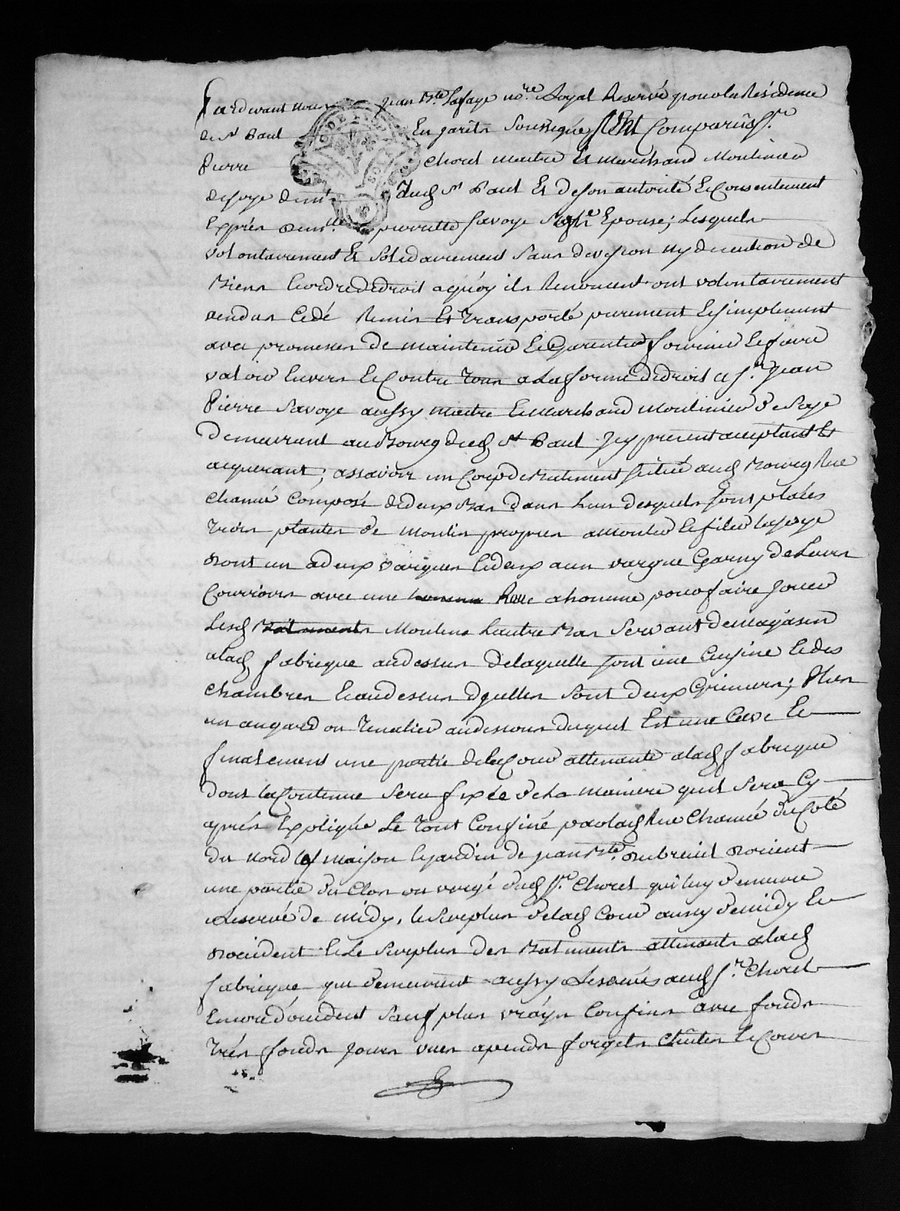 Pardevant nous Jean Bte Lafaye nore Royal Reservé pour la Residence
de st Paul En jarêts soussigné est Comparû sr
Pierre Choret maitre et marchand moulinier
de soye dem.t aud st Paul Et de son autorité et Consentement
Exprés dem.lle pierrette savoye son Epouse; Lesquels
volontairement Et solidairement sans division ny discution de
Biens hordre de droit a quoy ils Renoncent ont volontairement
vendus Cédé Remis Et transporté purement Et simplement
avec promesses de maintenir Et Garentir fournir Et faire
valoir Envers Et Contre Tous a La forme de droit a sr Jean
Pierre Savoye aussy maitre Et marchand moulinier de soye
Demeurant au Bourg dud st Paul Icy présent aceptant Et
acquerant; assavoir un Corp de Batiment scitué aud Bourg Rue
Chanié Composé de deux Bas dans L'un desquels sont placés
trois plantes de moulin propres a monter Et filer la soye
Dont un a deux vargues Et deux a un vargue Garny de Leurs
Courroirs avec une Roue a homme pour faire jouer
Lesd Batiments Moulins L'autre Bas servant de magasin
a lad fabrique au dessus de laquelle sont une Cuisine Et des
chambres Et au dessus d'ycelles sont deux Greniers; Plus
un angard ou Tenalier au dessous duquel Est une Cave Et
finalement une partie de la Cour attenante a lad fabrique
dont la Contenue sera fixée de la maniere quil sera Cy
aprés Expliqué Le Tout Confiné par lad Rue Chanié du Coté
du Nord maison Et jardin de jean Bte Dubreuil d'orient
une partie du Clos ou vergé dud sr Choret qui luy demeure
Reservé de midy, le surplus de lad Cour aussy de midy Et
occident Et Le surplus des Batiments attenants a lad
fabrique qui demeurent aussy Reservés aud sr Choret
Encore d'occident sauf plus vrays Confins avec fonds
trés fonds jours vues apends forgets Chûtes Et Cours